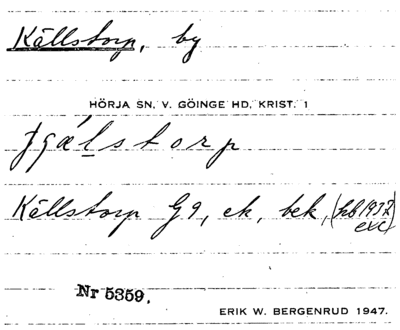 Källstorp, by
HÖRJA SN, V. GÖINGE HD, KRIST. 1
Källstorp G9, ek, bek, (kb 1937 exc)
Nr 5359.
ERIK W. BERGENRUD 1947.